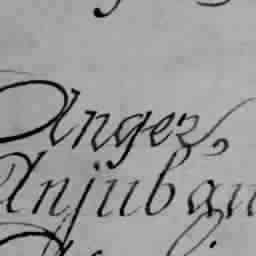 Anger,
Anjubau